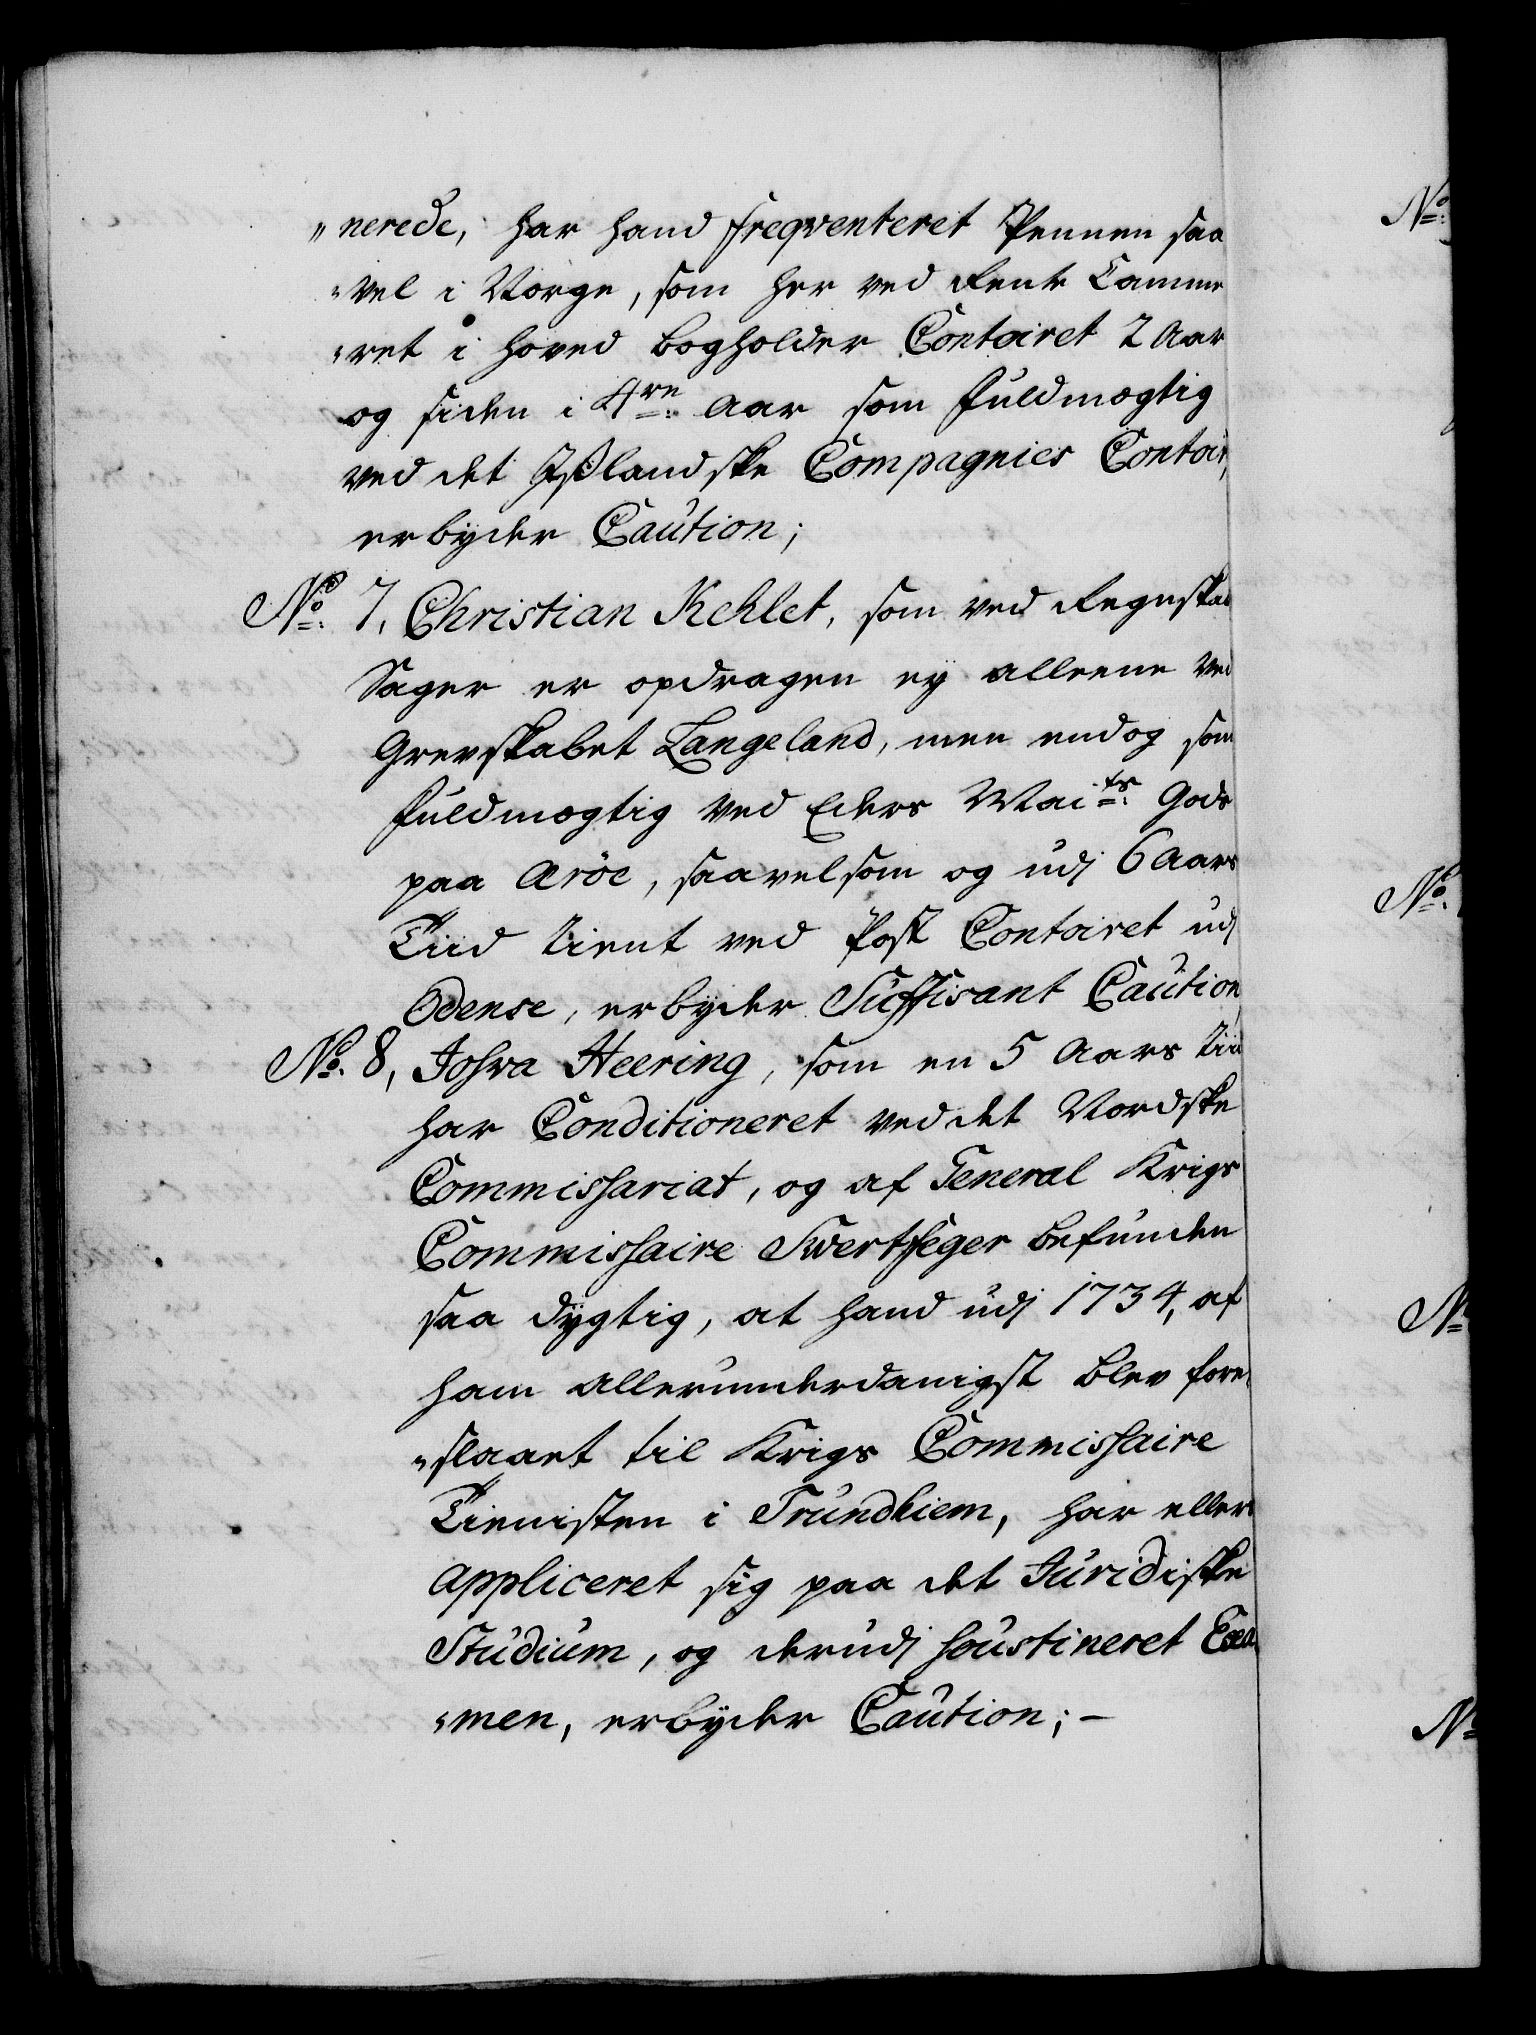 „nerede, har hand freqventeret Pennen saa
„vel i Norge, som her ved Rente Camme
„ret i Hoved Bogholder Contoiret 2 Aar
og siden i 4re Aar som fuldmægtig
ved det Ißlandske Compagnies Contoir,
erbyder Caution;
No. 7, Christian Kehlet, som ved Regnskab
Sager er opdragen ey alleene ved
Grevskabet Langeland, men endog som
fuldmægtig ved Eders Maits Gods
paa Æröe, saavelsom og udj 6 Aars
Tiid tient ved Post Contoiret udj
Odense, erbyder Suffisant Caution,
No. 8, Josva Heering, som en 5 Aars tiid
har Conditioneret ved det Nordske
Commissariat, og af General Krigs
Commissaire Svertfeger befunden
saa dygtig, at hand udj 1734, af
ham allerunderdanigst blev fore„
„slaaet til Krigs Commissaire
Tienisten i Trundhiem, har ellers
appliceret sig paa det Juridiske
Studium, og derudj soustineret Exa„
„men, erbyder Caution; –
No.
No.
No
No